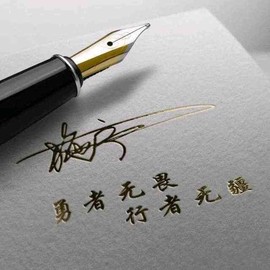 勇者无畏
行者无疆